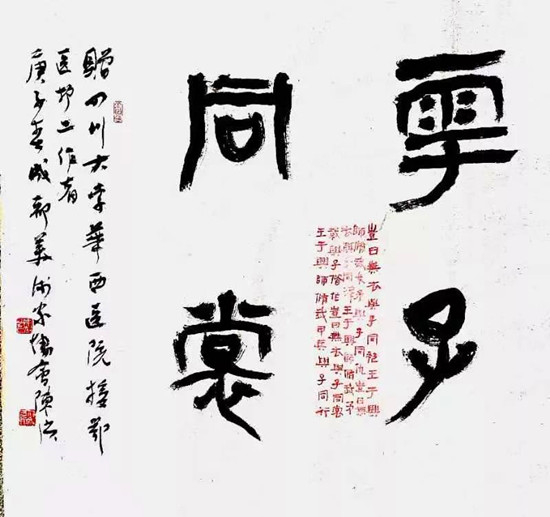 与子
同裳
豈曰無衣與子同袍王于興
師脩我戈矛與子同仇豈曰無
衣與子同澤王于興師脩我矛
戟與子偕作豈曰無衣與子同裳
王于興師脩我甲兵與子同行
贈四川大学華西医院援鄂
医护工作者
庚子春成都美術家協會陳